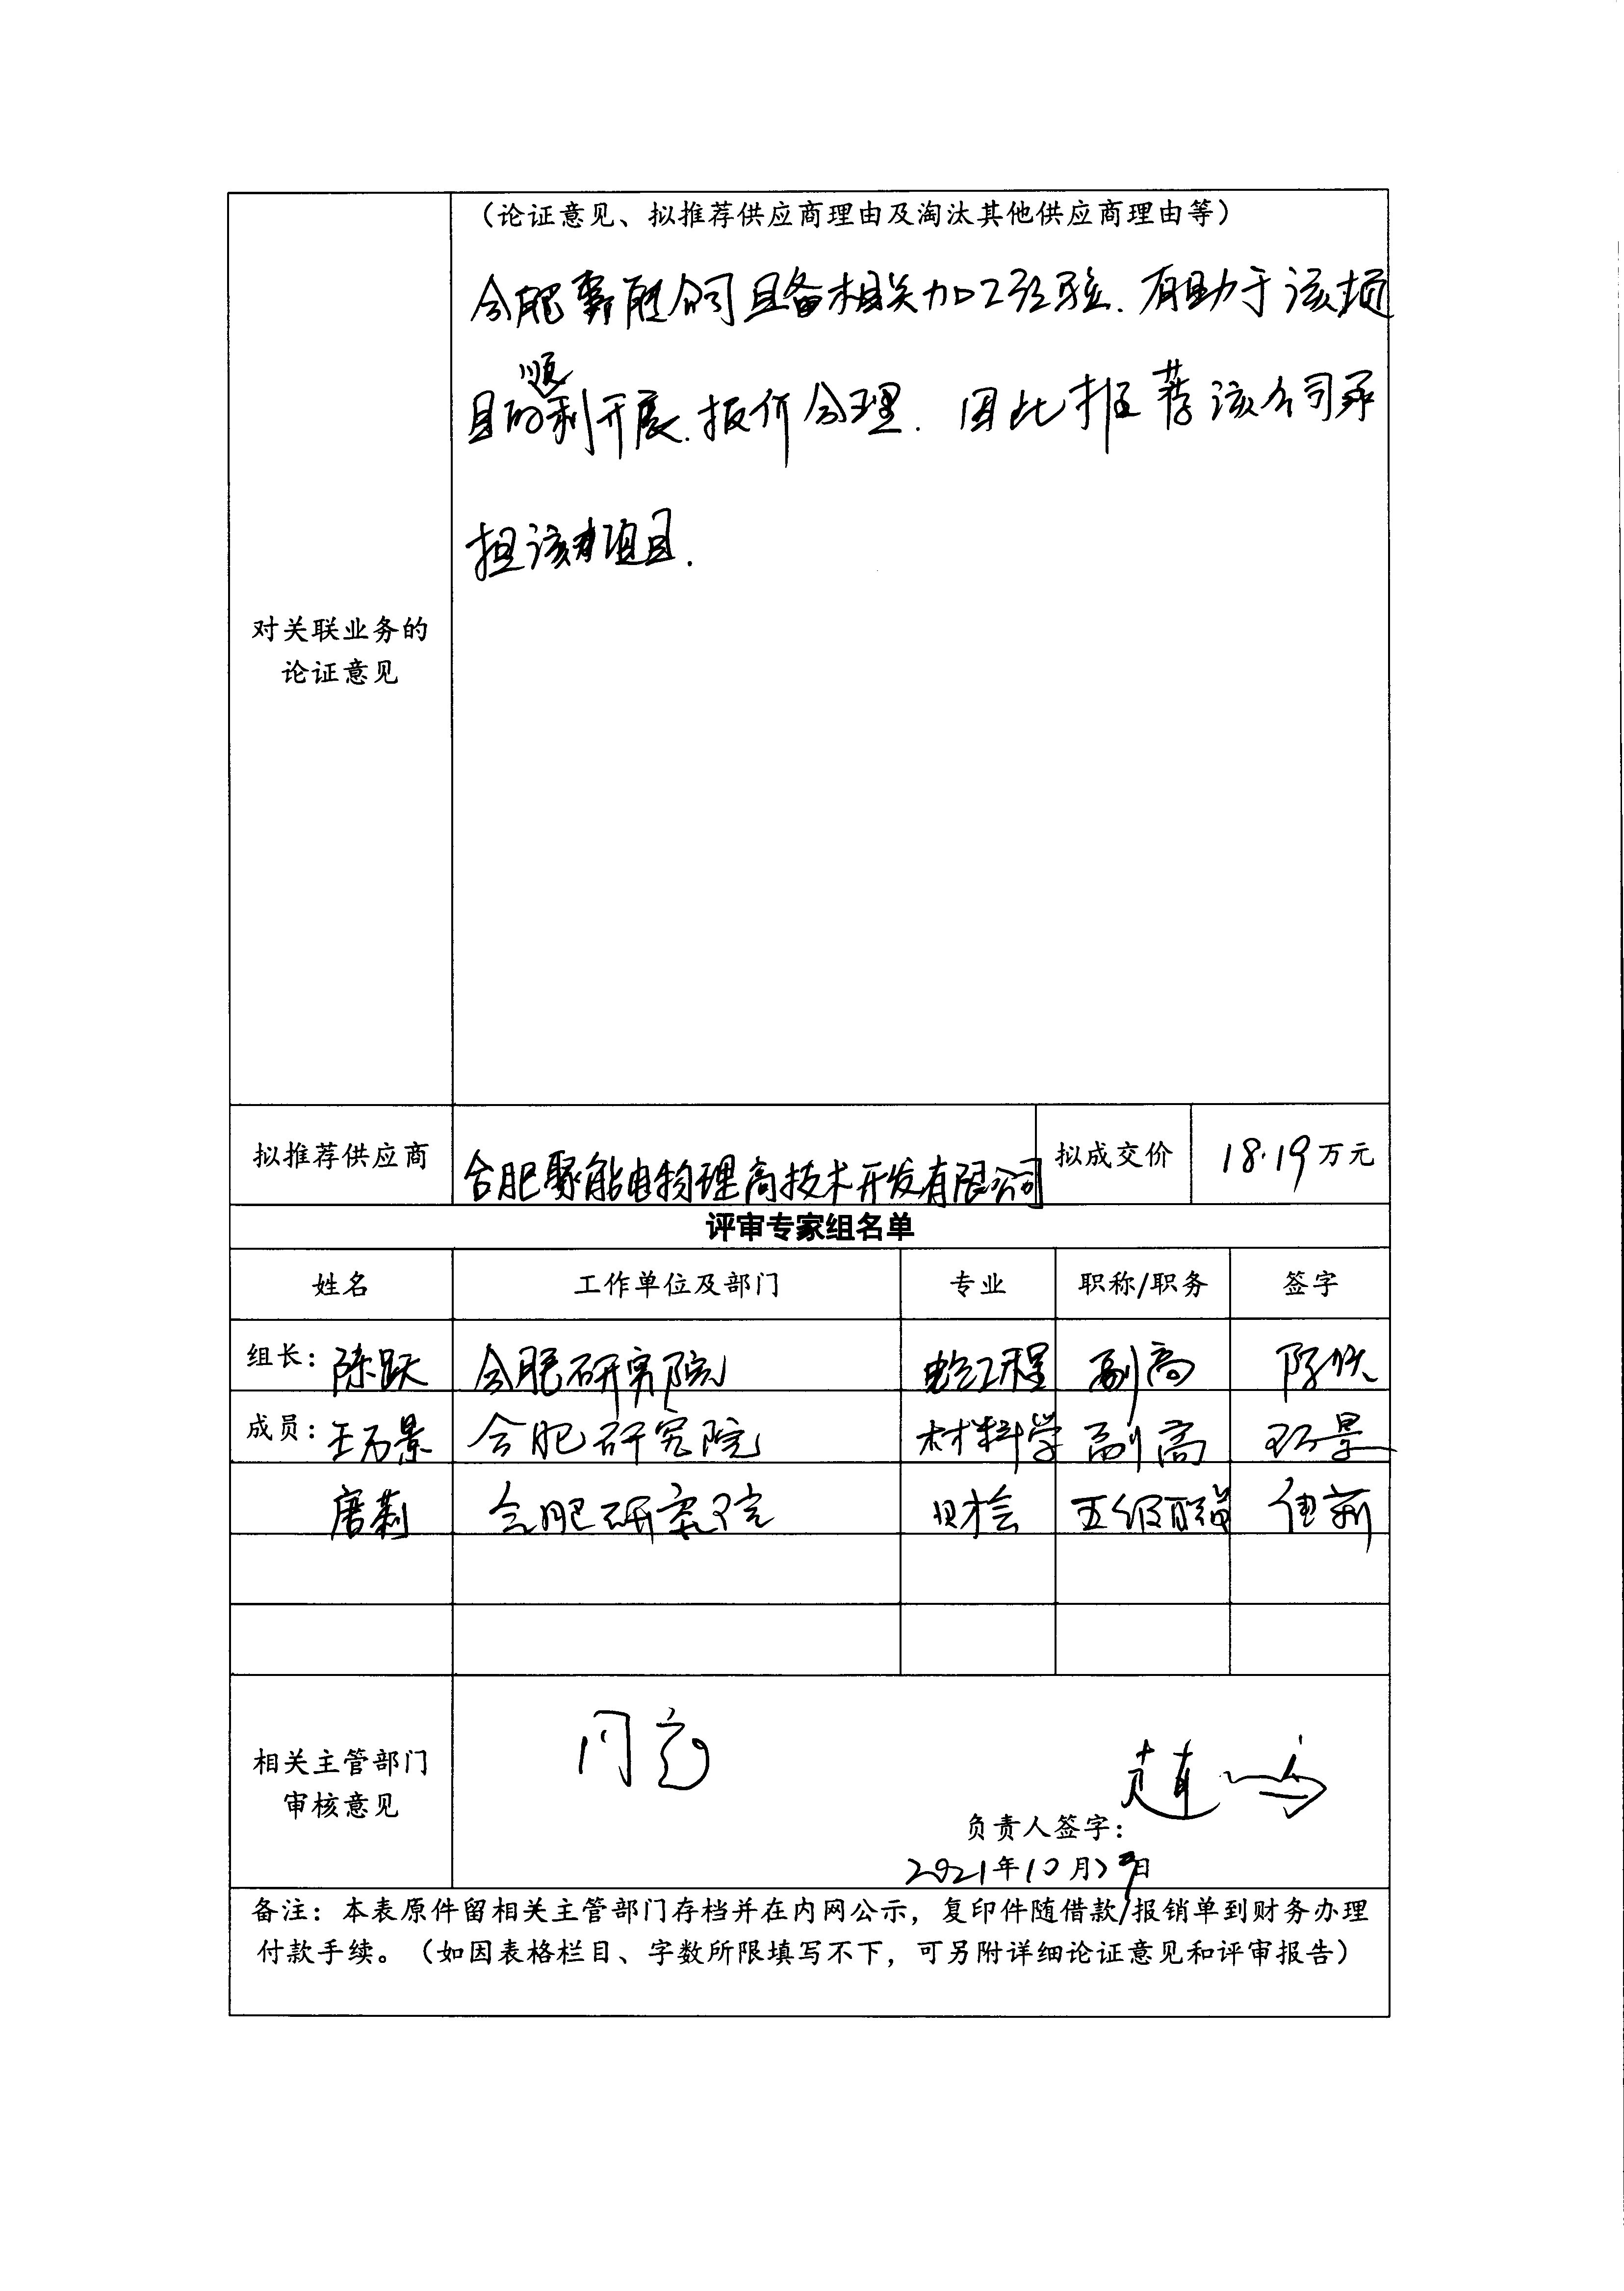 （论证意见、拟推荐供应商理由及淘汰其他供应商理由等）
合肥聚能公司具备相关加工经验．有助于该项
目的顺利开展．报价合理．因此推荐该公司承
担该项目．
对关联业务的
论证意见
拟推荐供应商 合肥聚能电物理高技术开发有限公司 拟成交价 18.19万元
评审专家组名单
姓名 工作单位及部门 专业 职称/职务 签字
组长：陈跃 合肥研究院 工程 副高 陈跃
成员：王万景 合肥研究院 材料科学 副高 王万景
唐莉 合肥研究院 财会 五级职员 唐莉
相关主管部门
审核意见
同意
负责人签字：
2021年10月29日
备注：本表原件留相关主管部门存档并在内网公示，复印件随借款/报销单到财务办理
付款手续。（如因表格栏目、字数所限填写不下，可另附详细论证意见和评审报告）